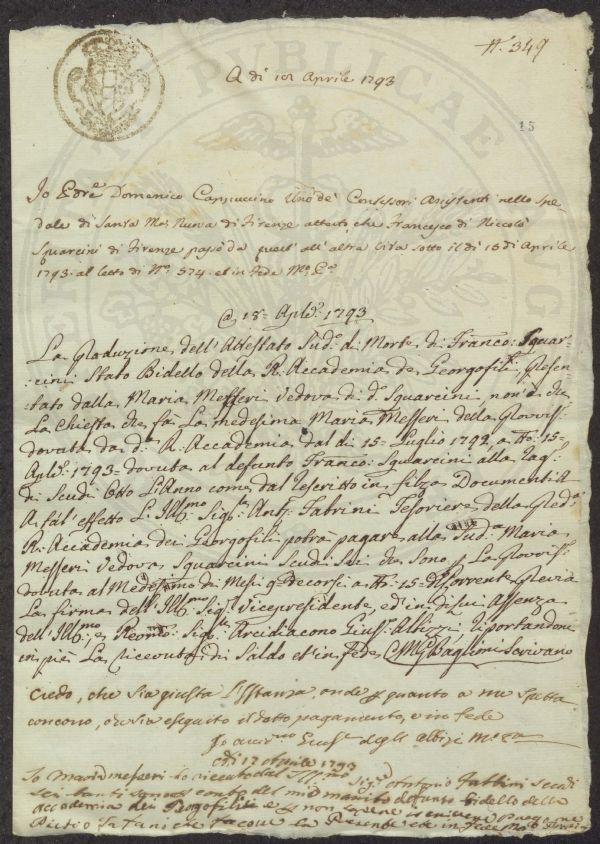 N. 349
A dì 101 Aprile 1793
15
Io Domenico Cappuccino Uno de' Confessori Assistenti nello Spe-
dale di Santa Ma. Nuova di Firenze attesto, che Francesco di Niccolò
Squarcini di Firenze passò da quest' all' altra Vita sotto il dì 15 di Aprile
1793. al letto di No. 574. et in fede
@ 18 Aple. 1793
La Produzione dell'Attestato Sudo. di Morte di Franco: Squar-
cini Stato Bidello della R. Accademia de Georgofili, Presen-
tato dalla Maria Messeri Vedova di do. Squarcini, non'è che
La Chiesta che fà La medesima Maria Messeri della
dovuta da da. R. Accademia dal dì 15 Luglio 1792 a tto. 15
Aple. 1793 dovuta al defunto Franco: Squarcini alla
di Scudi Otto L'Anno come dal rescritto in filza Documenti A
A tal' effetto L'Illmo. Sigre. Anto. Fabrini Tesoriere della
R. Accademia dei Georgofili potrà pagare alla Suda. Maria
Messeri Vedova Squarcini Scudi Sei che Sono p. La
dovuta al Medesimo di Mesi 9 decorsi a tto. 15 Corrente, Previa
La firma dell'Illmo. Sigre. Vicepresidente, ed in di Lui Assenza
dell'Illmo. e Revmo. Sigre. Arcidiacono Albizzi riportandone
in piè La ricevuta di Saldo et in fede Baglioni Scrivano
Credo, che sia giusta l'Istanza onde p. quanto a me spetta
concorro, che sia eseguito il detto pagamento, e in fede
Io degli Albizi
dì 17 Aprile 1793
Io Maria Messeri ò ricevuto dal Sigre. Antonio Fabbrini Scudi
Sei conto del mio marito defunto Bidello della
Accademia dei Gorgofili e p. non sapere scrivere
Pietro La Presente